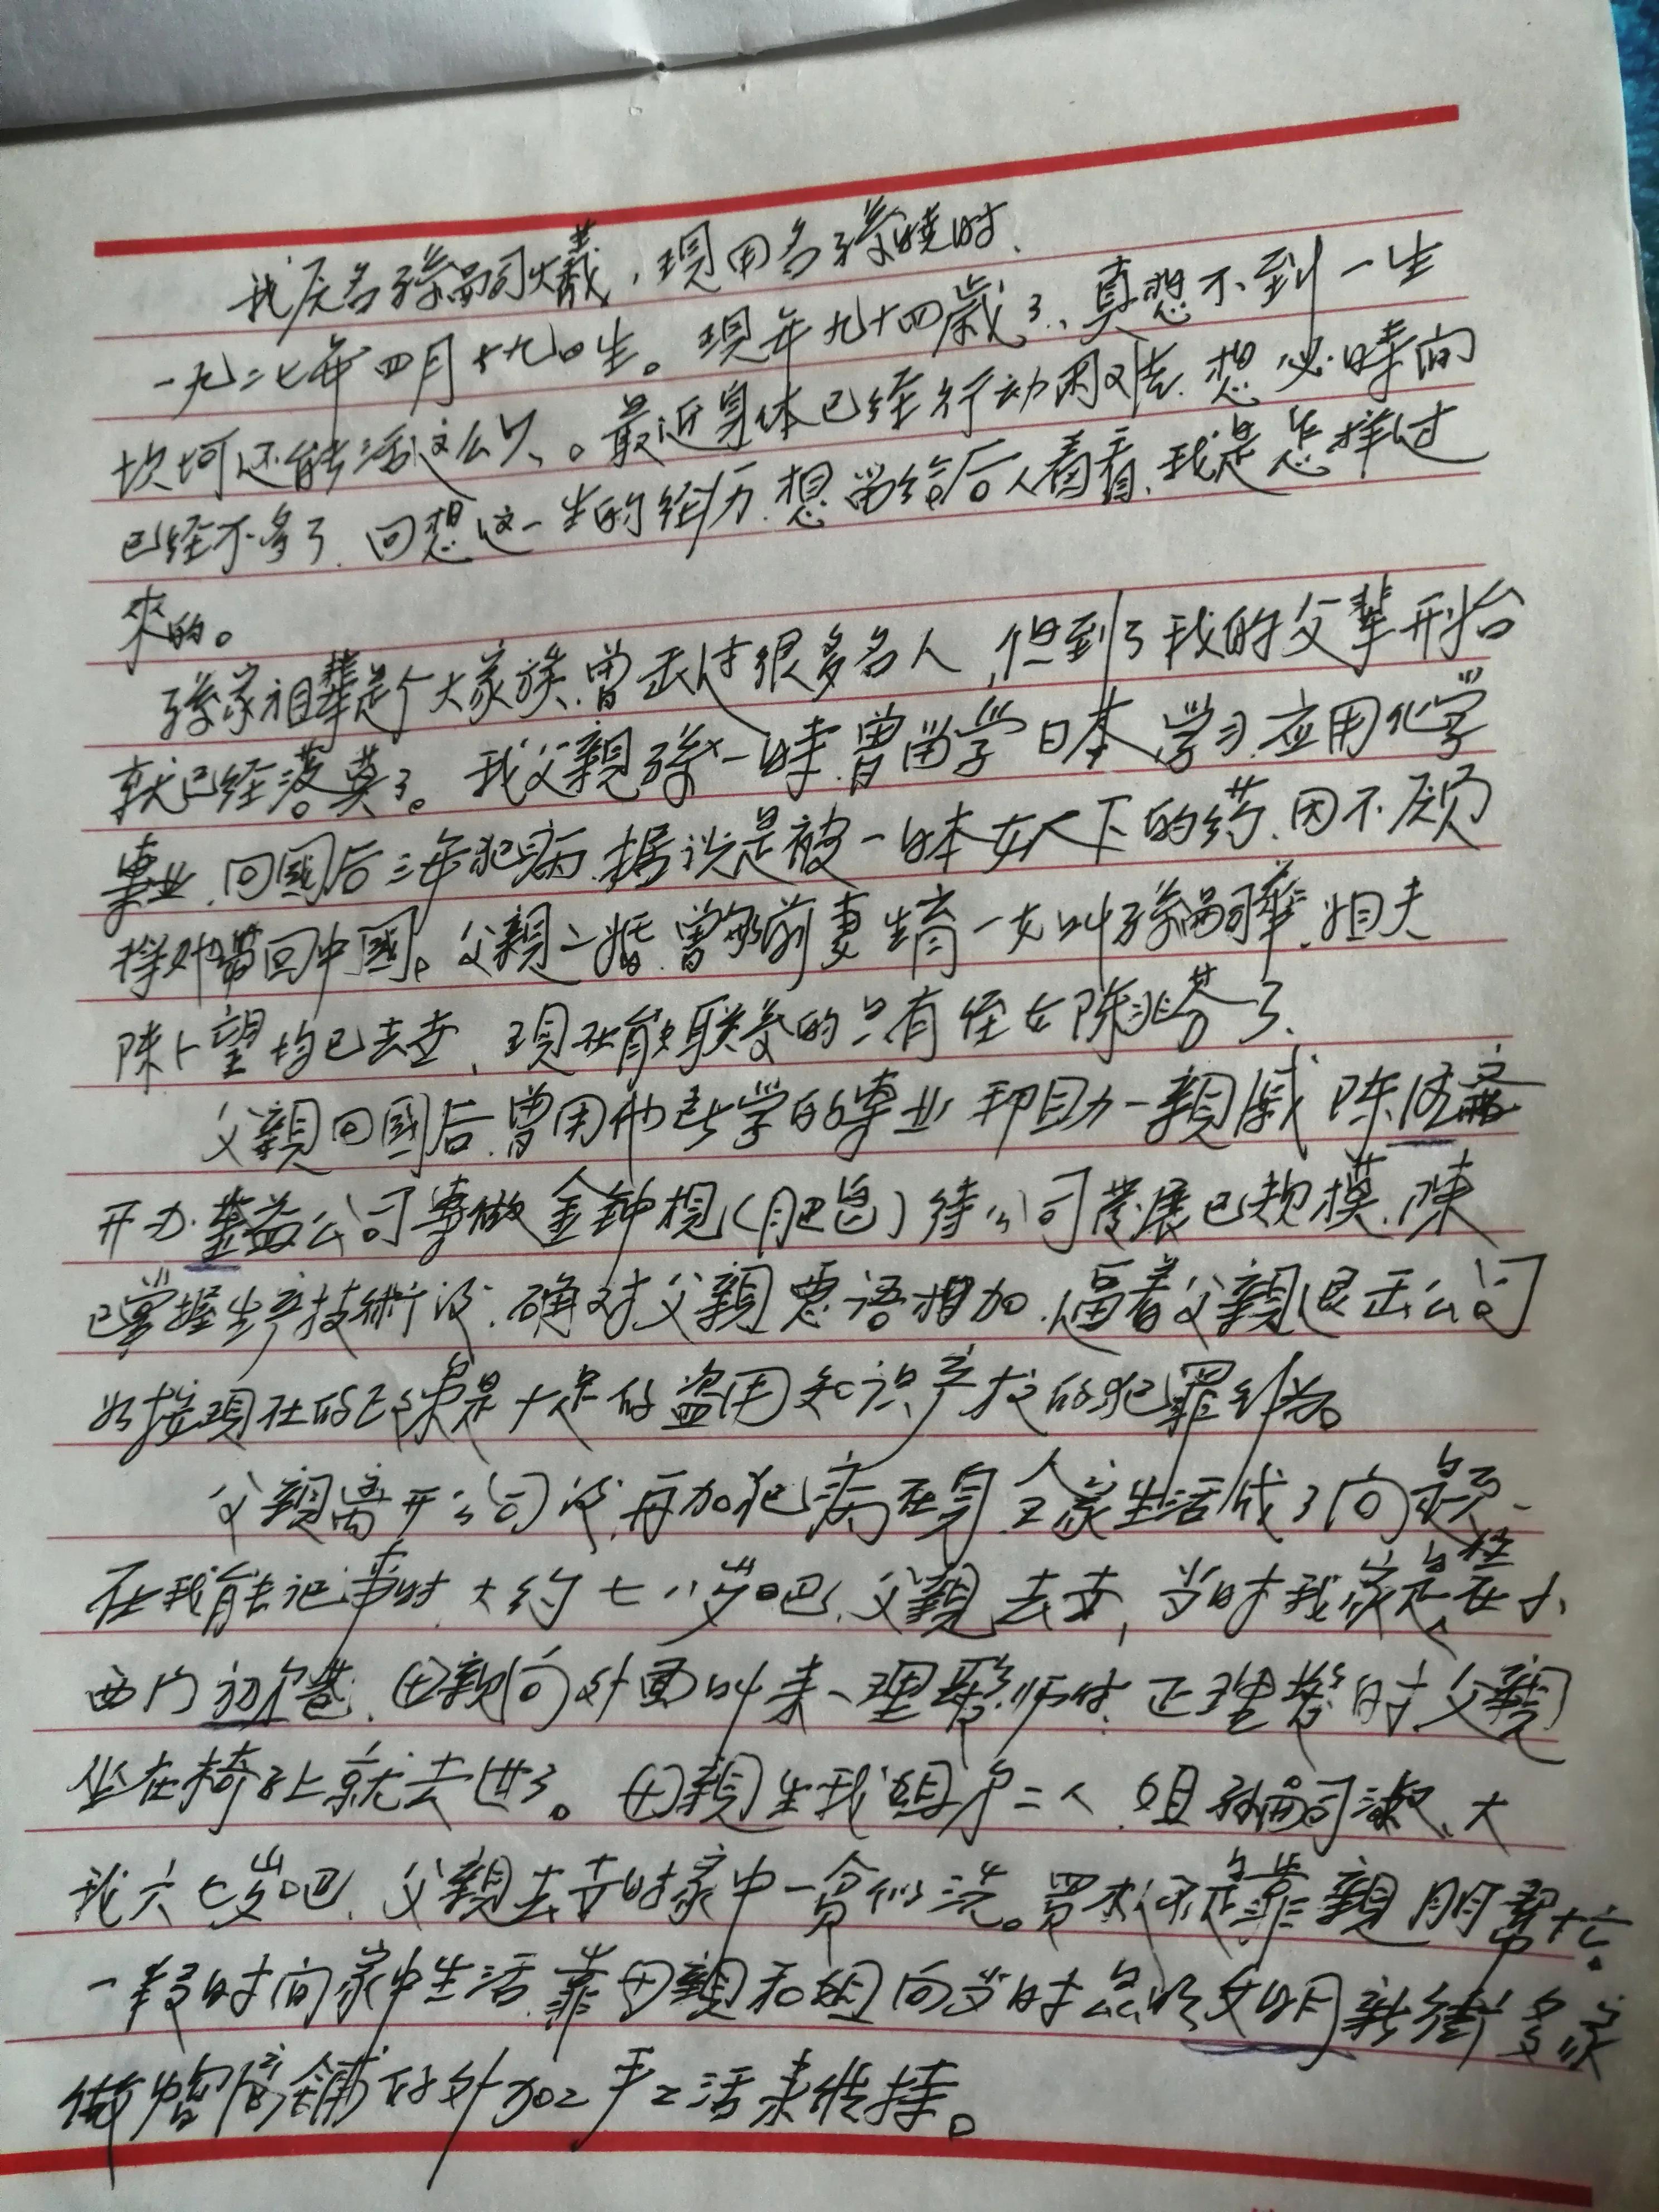 我原名孫嗣羲，現用名孫曉时.
一九二七年四月十九日生。現年九十四歲了、真想不到一生
坎坷还能活这么久。最近身体已经行动困难.想必時间
已经不多了.回想这一生的经历.想留给后人看看、我是怎样过
來的。
孫家祖輩是个大家族.曾出过很多名人,但到了我的父輩开始
就已经落莫了。我父親孫一時.曾留学日本学习应用化学
專业.回國后三年犯病.据说是被一日本女人下的药.因不愿
将她带回中國。父親二婚.曾和前妻生育一女叫孫嗣華.姐夫
陳卜望均已去世,現在能联系的只有侄女陳兆芬了.
父親回國后.曾用他所学的專业帮助一親戚陳
开办益公司專做金钟梘(肥皂)待公司發展已規模.陳
已掌握生产技術後.确对父親恶语相加.逼着父親退出公司
如按現在的是十足的盗用知识产权的犯罪行为。
父親离开公司後.再加犯病在身.全家生活成了问题.
在我能记事时大约七八岁吧.父親去世,当时我家是住在小
西门巷.母親向外面叫来一理髮师付.正理髮时父親
坐在椅子上就去世了。母親生我姐弟二人.姐孫嗣淑、大
我六七岁吧.父親去世时家中一贫似洗。買木还是靠親朋幫忙。
一段时间家中生活.靠母親和姐向当时昆明文明新街多家
做帽店鋪的外加工手工活来维持。